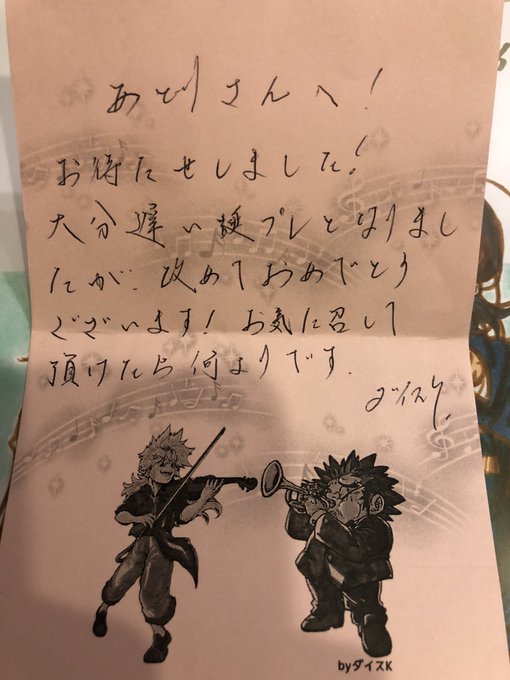 あどりさんへ!
お待たせしました!
大分遅い誕プレとなりまし
たが、改めておめでとう
ございます! お気に召して
頂けたら何よりです.
ダイスケ.
byダイスK